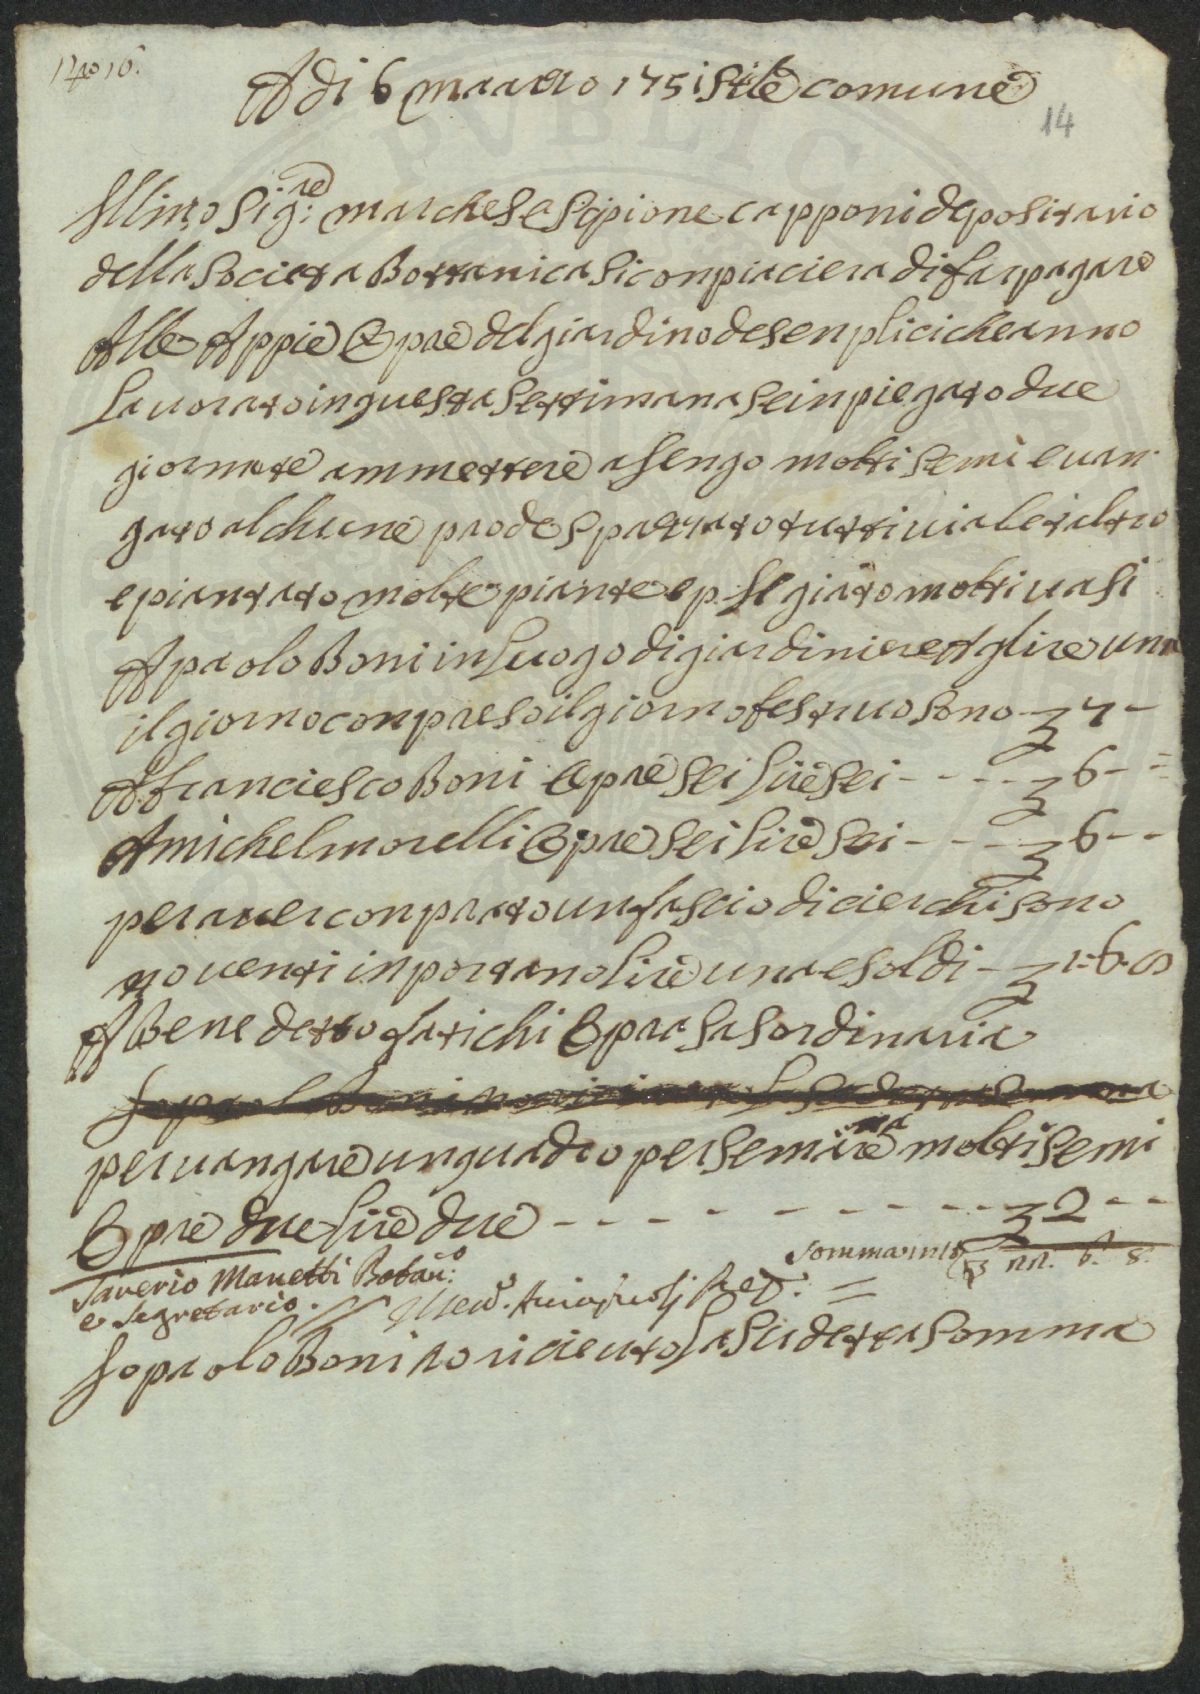 A di 6 marzo 1751 stile comune
14
Illmo Sig:re marchese Scipione capponi depositario
della Societa Bottanica si conpiaciera di far pagare
Alle Appie Opre del giardino de senplici che anno
Lavorato in questa settimana se inpiegato due
giornate ammettere assengo molti semi e van
gato alchune prode spazzato tutti viali et altro
e piantato molte piante e molti vasi
A paolo Boni in Luogo di giardiniere A lire una
il giorno conpreso il giorno festivo sono - 7 -
A franciesco Boni Opre sei Lire sei - - - - 6 - -
A michel morelli Opre sei Lire sei - - - - 6 - -
per aver conprato un fascio di cierchi sono
no venti inportano Lire una e soldi - 1. 6. 8
A Benedetto fatichi Opra sasordinaria
per vangare un quadro per seminare molti semi
Opre due Lire due - - - - - - - - - - 2 - -
Sommanno 22. 6. 8.
Saverio Manetti Botan:o
e Segretario.
Io paolo Boni o riceuto La sudetta somma